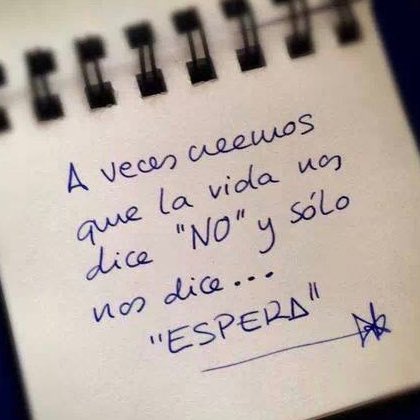 A veces creemos
que la vida nos
dice "NO" y sólo
nos dice...
"ESPERA"